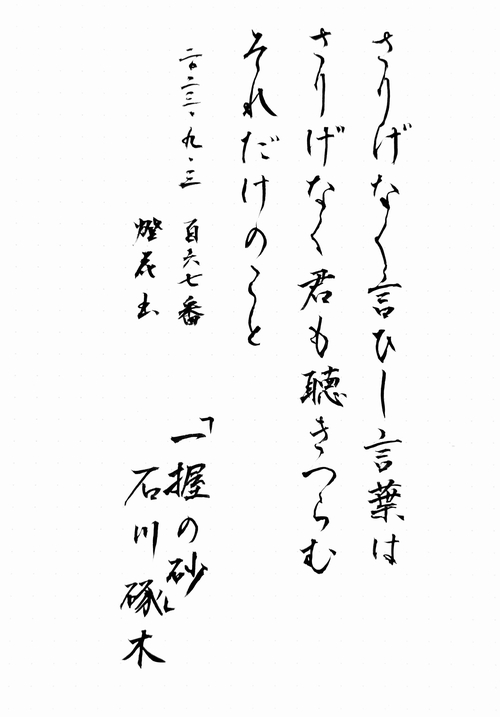 さりげなく言ひし言葉は
さりげなく君も聴きつらむ
それだけのこと
二〇二三・九・三　百六七番
燈花书
「一握の砂」
石川啄木